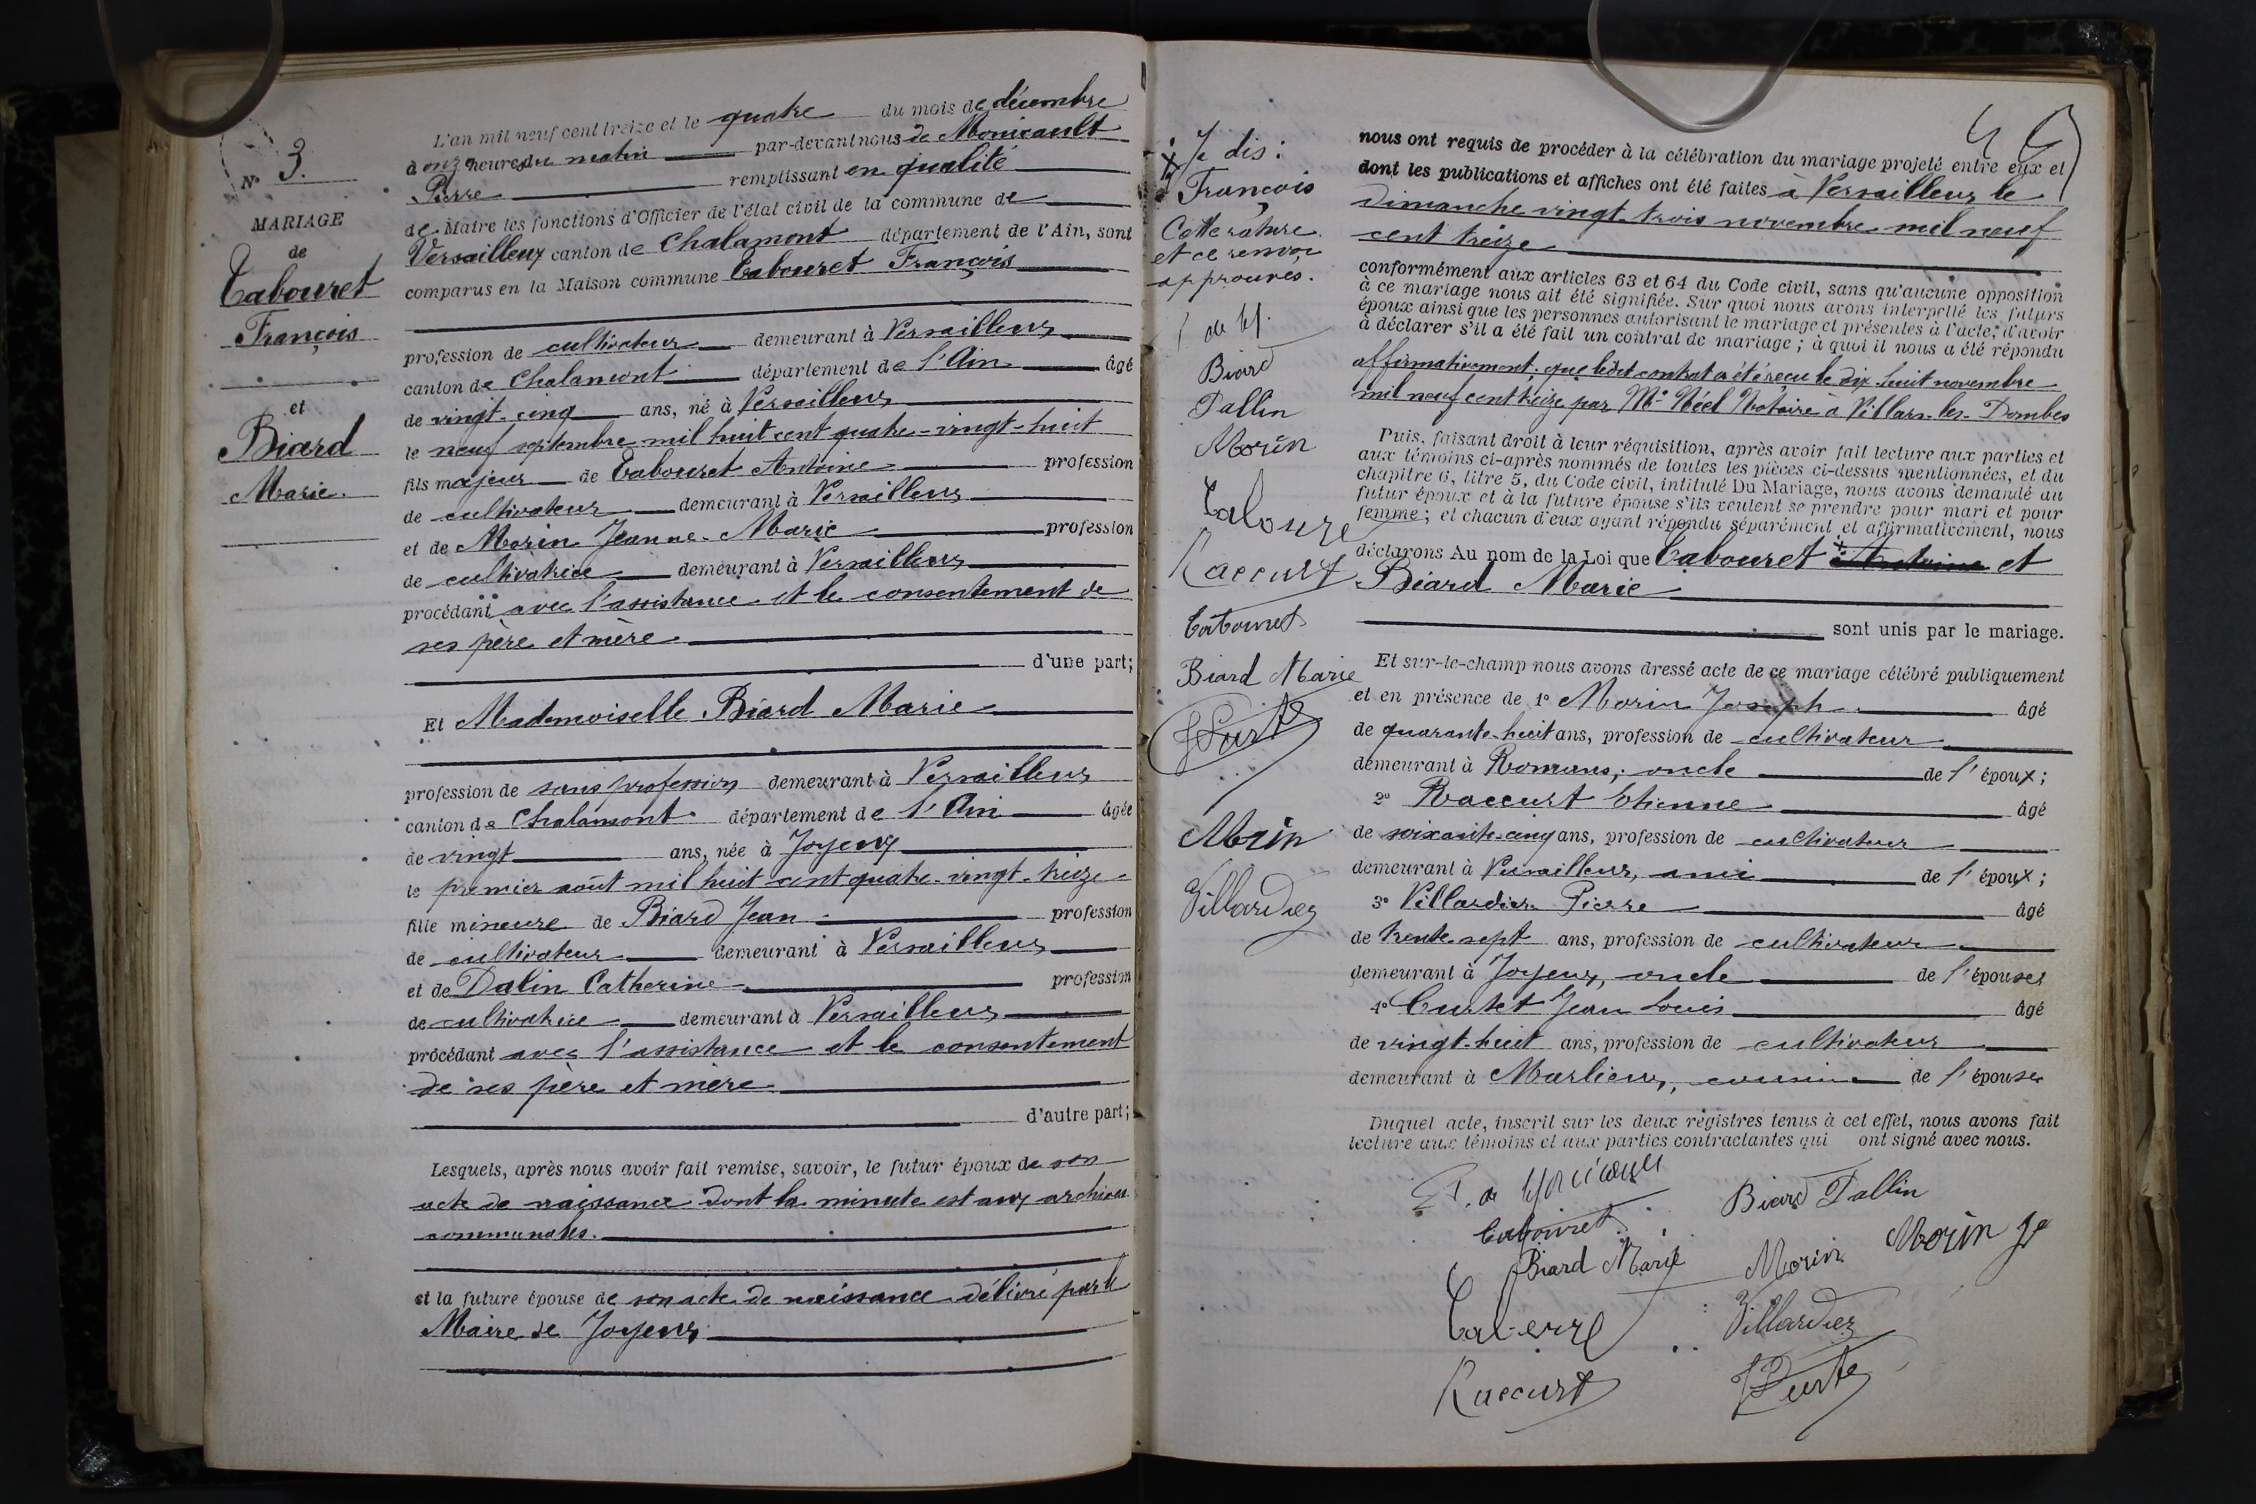 N° 3.
MARIAGE
de
Tabouret
François
et
Biard
Marie.
L'an mil neuf cent treize et le quatre du mois de décembre
à onze heures du matin par-devant nous de Monicault
Pierre remplissant en qualité
de Maire les fonctions d'Officier de l'état civil de la commune de
Versailleux canton de Chalamont département de l'Ain, sont
comparus en la Maison commune Tabouret François
profession de cultivateur demeurant à Versailleux
canton de Chalamont département de l'Ain âgé
de vingt-cinq ans, né à Versailleux
le neuf septembre mil huit cent quatre-vingt-huit
fils majeur de Tabouret Antoine profession
de cultivateur demeurant à Versailleux
et de Morin Jeanne-Marie profession
de cultivatrice demeurant à Versailleux
procédant avec l'assistance et le consentement de
ses père et mère
d'une part;
Et Mademoiselle Biard Marie
profession de sans profession demeurant à Versailleux
canton de Chalamont département de l'Ain âgée
de vingt ans, née à Joyeux
le premier août mil huit cent quatre-vingt-treize
fille mineure de Biard Jean profession
de cultivateur demeurant à Versailleux
et de Dalin Catherine profession
de cultivatrice demeurant à Versailleux
procédant avec l'assistance et le consentement
de ses père et mère
d'autre part;
Lesquels, après nous avoir fait remise, savoir, le futur époux de son
acte de naissance dont la minute est aux archives
communales.
et la future épouse de son acte de naissance délivré par le
Maire de Joyeux
Je dis:
François
Cette rature
et ce renvoi
approuvés.
de M.
Biard
Dallin
Morin
Raccurt
Tabouret
Biard Marie
Morin
Villardiez
nous ont requis de procéder à la célébration du mariage projeté entre eux et
dont les publications et affiches ont été faites à Versailleux le
dimanche vingt-trois novembre mil neuf
cent treize
conformément aux articles 63 et 64 du Code civil, sans qu'aucune opposition
à ce mariage nous ait été signifiée. Sur quoi nous avons interpellé les futurs
époux ainsi que les personnes autorisant le mariage et présentes à l'acte, d'avoir
à déclarer s'il a été fait un contrat de mariage; à quoi il nous a été répondu
affirmativement, que ledit contrat a été reçu le dix-huit novembre
mil neuf cent treize par Me Néel Notaire à Villars-les-Dombes
Puis, faisant droit à leur réquisition, après avoir fait lecture aux parties et
aux témoins ci-après nommés de toutes les pièces ci-dessus mentionnées, et du
chapitre 6, titre 5, du Code civil, intitulé Du Mariage, nous avons demandé au
futur époux et à la future épouse s'ils veulent se prendre pour mari et pour
femme; et chacun d'eux ayant répondu séparément et affirmativement, nous
déclarons Au nom de la Loi que Tabouret Antoine et
Biard Marie
sont unis par le mariage.
Et sur-le-champ nous avons dressé acte de ce mariage célébré publiquement
et en présence de 1° Morin Joseph âgé
de quarante-huit ans, profession de cultivateur
demeurant à Romans, oncle de l'époux;
2° Raccurt Etienne âgé
de soixante-cinq ans, profession de cultivateur
demeurant à Versailleux, ami de l'époux;
3° Villardier Pierre âgé
de trente-sept ans, profession de cultivateur
demeurant à Joyeux, oncle de l'épouse;
4° Curtet Jean Louis âgé
de vingt-huit ans, profession de cultivateur
demeurant à Marlieux, cousin de l'épouse
Duquel acte, inscrit sur les deux registres tenus à cet effet, nous avons fait
lecture aux témoins et aux parties contractantes qui ont signé avec nous.
P. de Monicault
Biard Dallin
Tabouret
Biard Marie
Morin
Morin Je
Villardiez
Raccurt